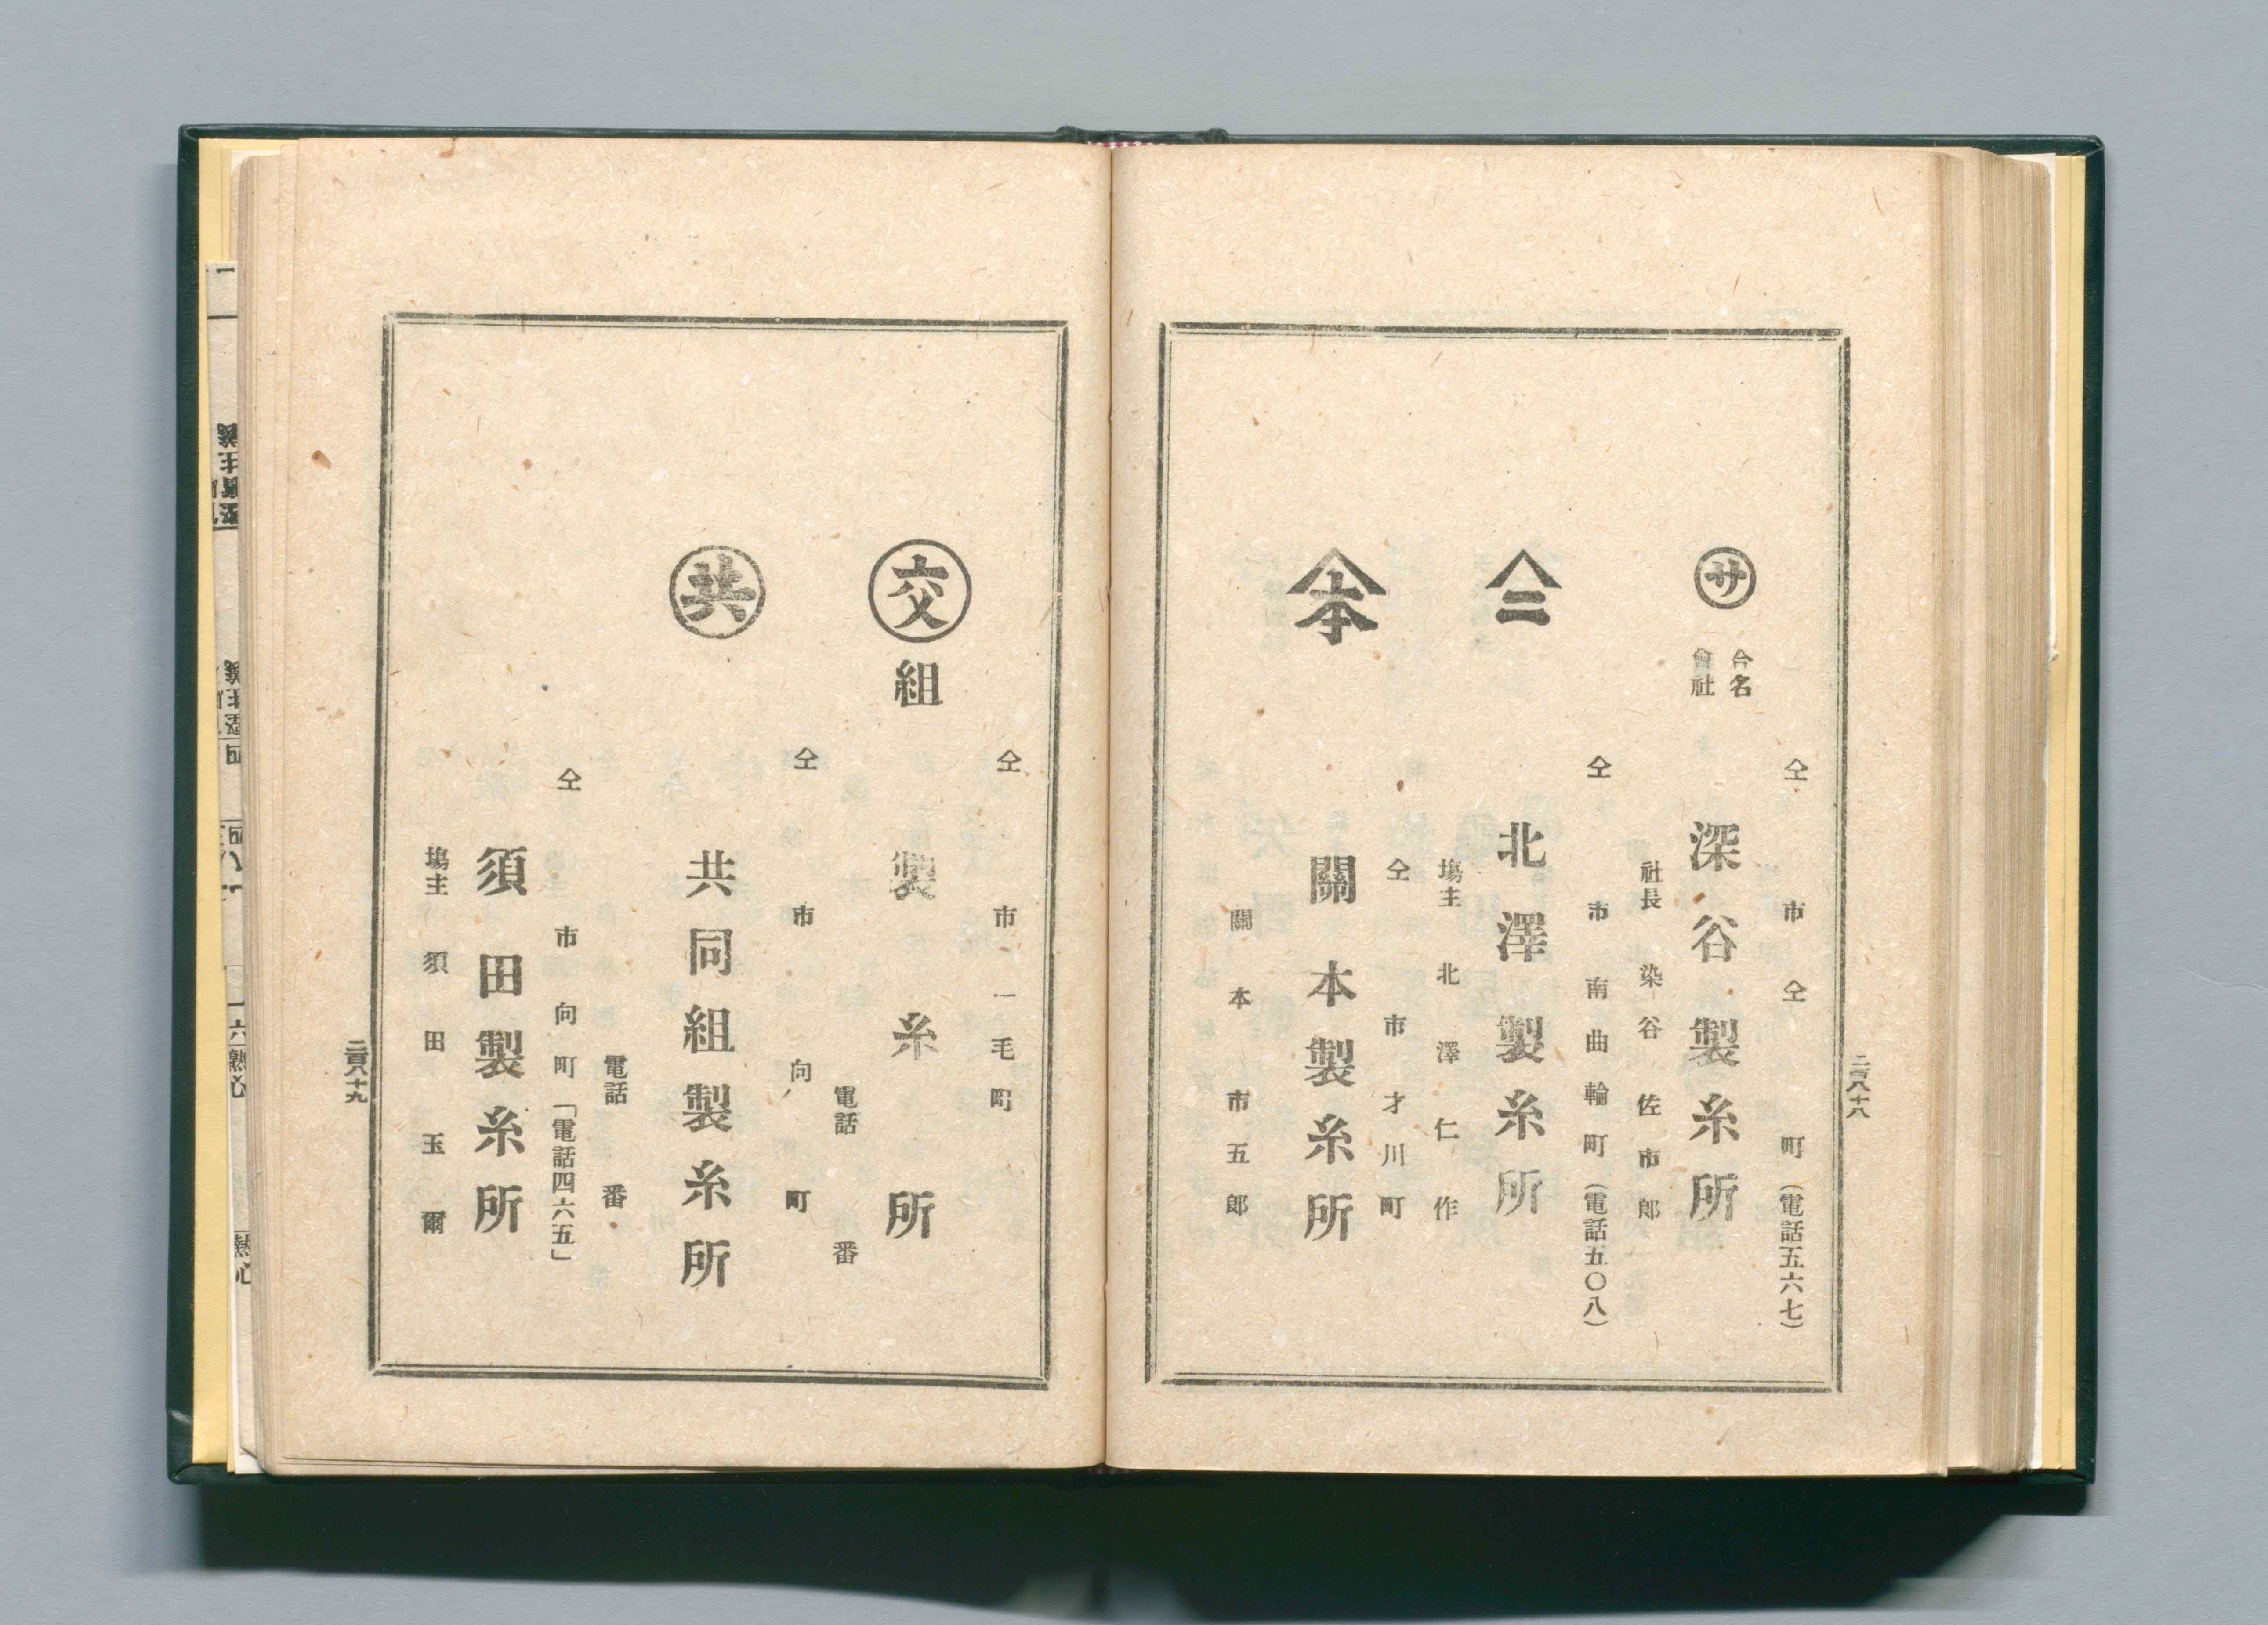 仝市仝町（電話五六七）
㋚
合名
會社
深谷製糸所
社長 染谷佐市郎
仝市南曲輪町（電話五〇八）
二
北澤製糸所
塲主 北澤仁作
仝市才川町
本
關本製糸所
關本市五郎
二百八十八
仝市一毛町
交
組
製糸所
電話 番
仝市向町
共
共同組製糸所
電話 番
仝市向町「電話四六五」
須田製糸所
塲主 須田玉爾
二百八十九